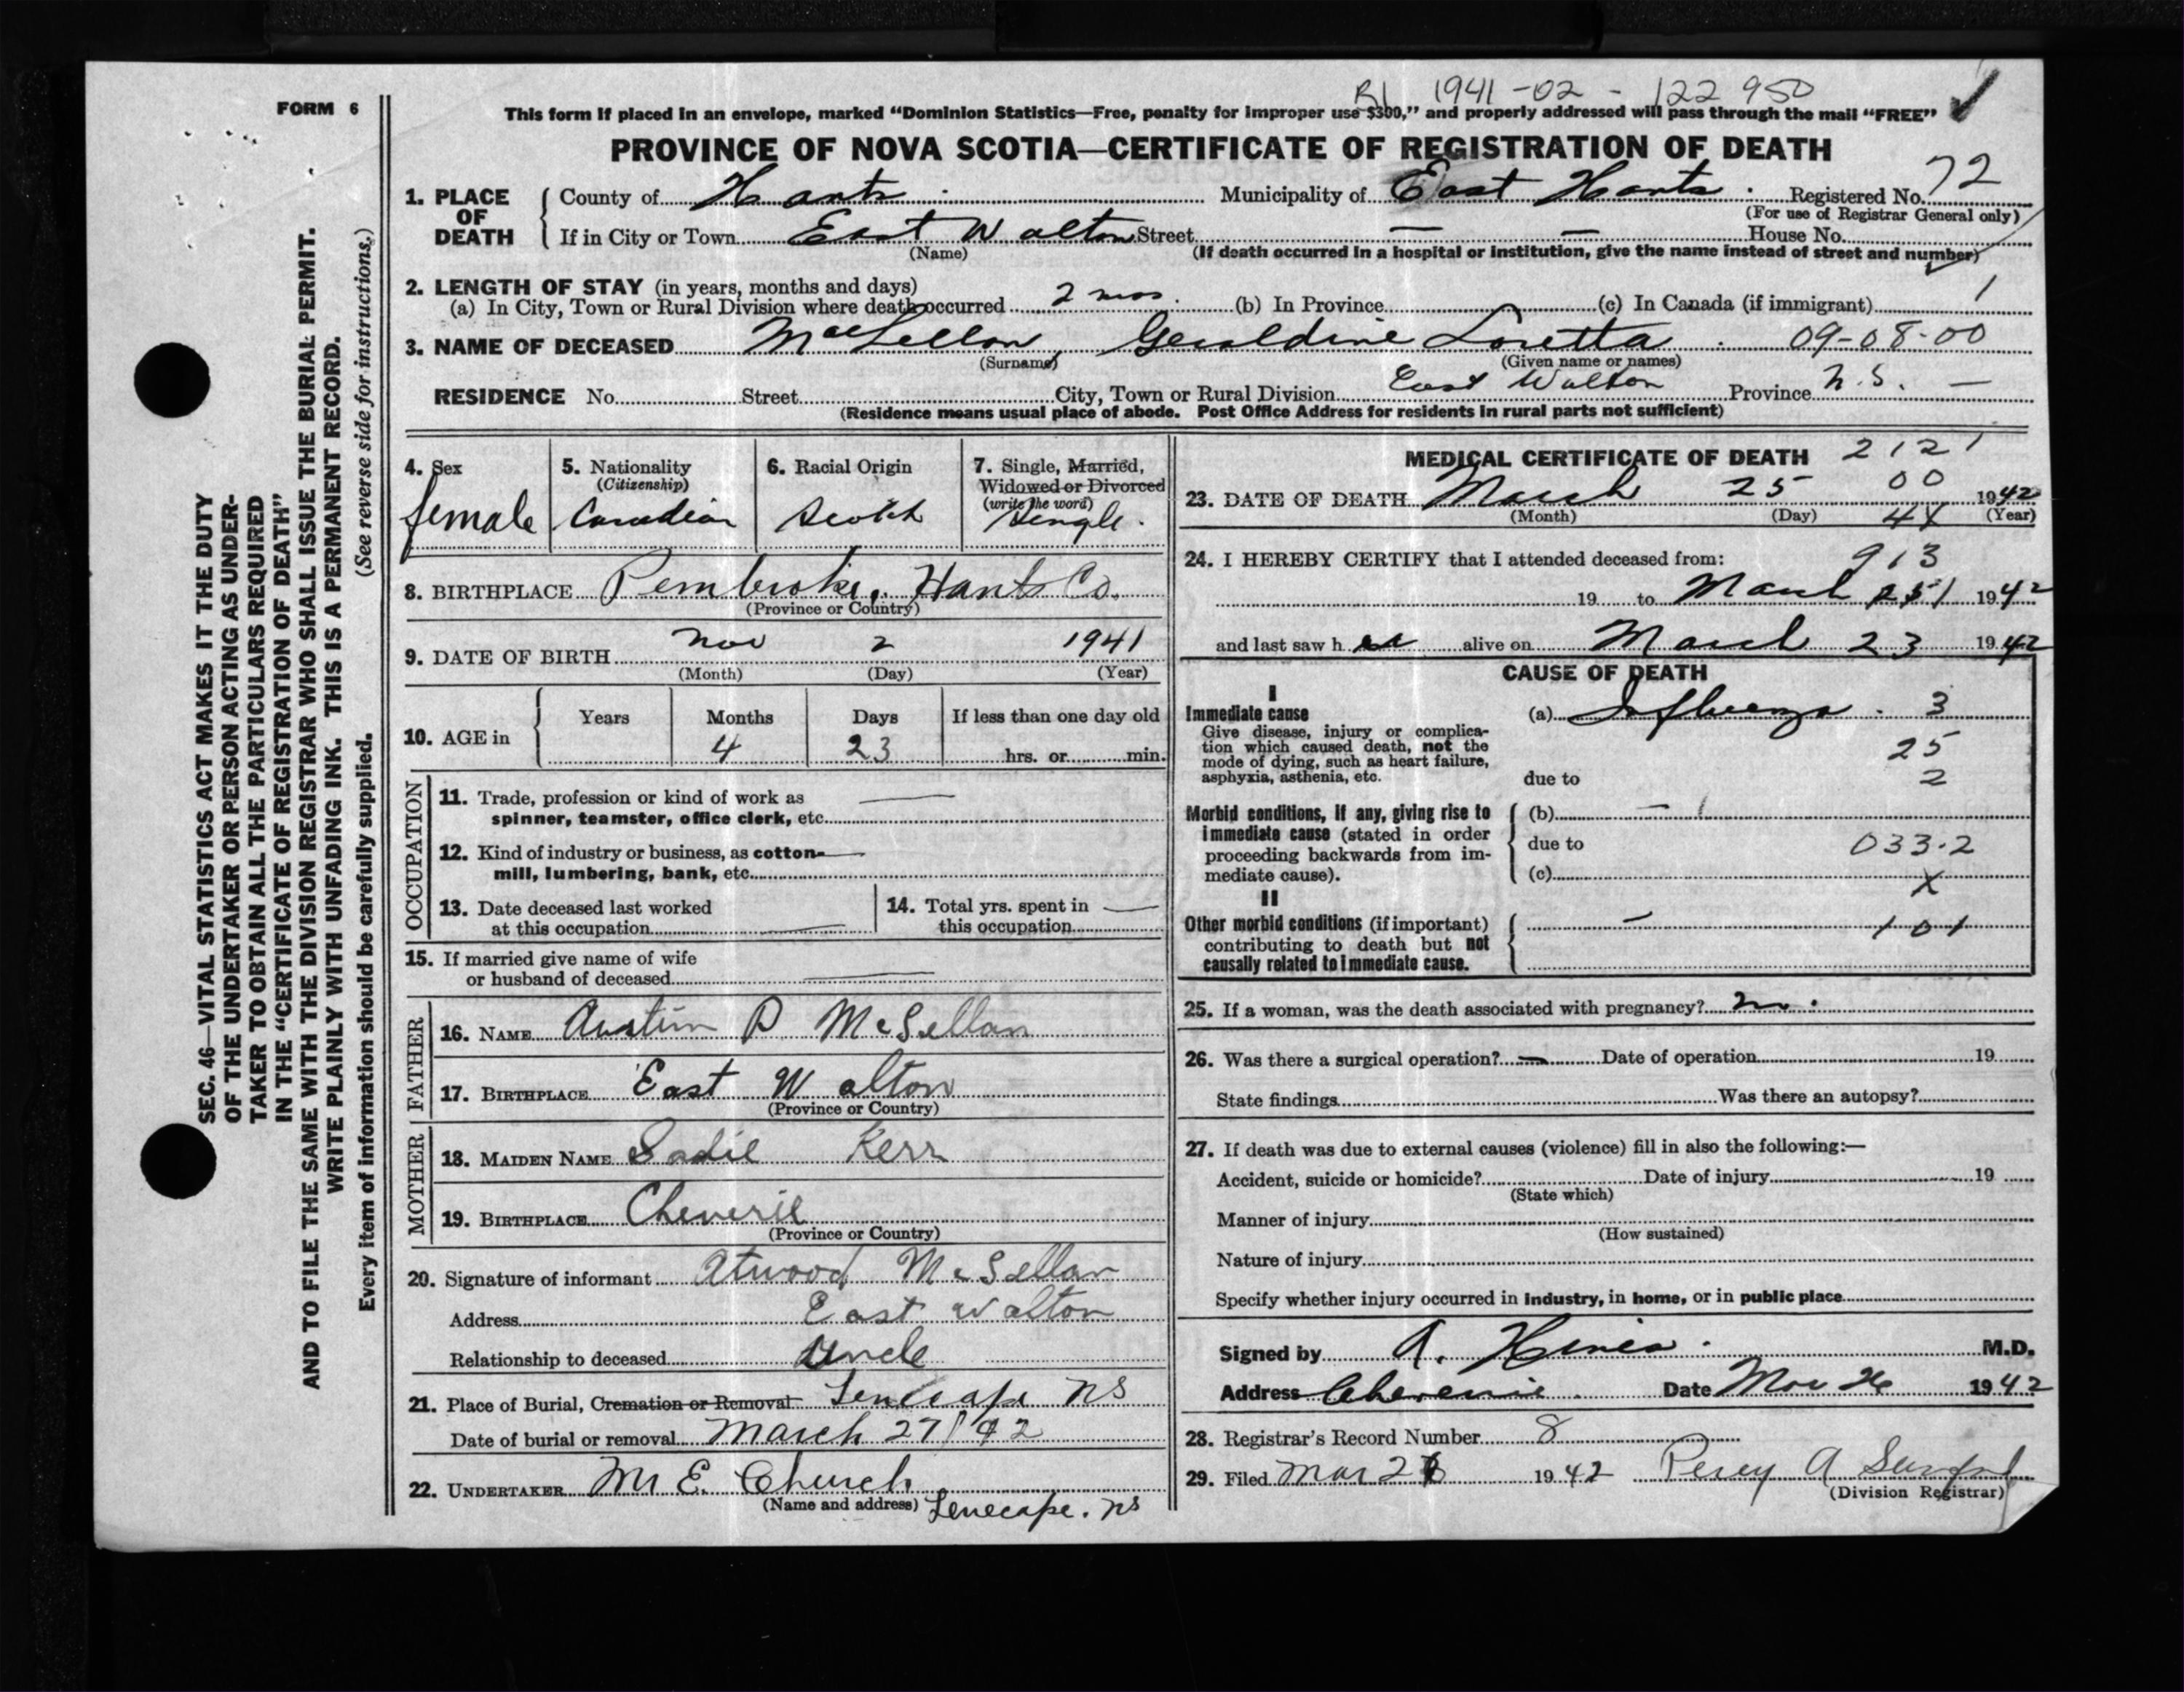 FORM 6
B1 1941-02-122950
This form if placed in an envelope, marked “Dominion Statistics—Free, penalty for improper use $300,” and properly addressed will pass through the mail “FREE”
PROVINCE OF NOVA SCOTIA—CERTIFICATE OF REGISTRATION OF DEATH
1. PLACE OF DEATH
County of Hants Municipality of East Hants Registered No. 72
(For use of Registrar General only)
If in City or Town East Walton Street — — House No.
(Name) (If death occurred in a hospital or institution, give the name instead of street and number)
2. LENGTH OF STAY (in years, months and days)
(a) In City, Town or Rural Division where death occurred 2 mos. (b) In Province (c) In Canada (if immigrant) 1
3. NAME OF DECEASED MacLellan, Geraldine Loretta. 09-08-00
(Surname) (Given name or names)
RESIDENCE No. Street City, Town or Rural Division East Walton Province N.S. —
(Residence means usual place of abode. Post Office Address for residents in rural parts not sufficient)
4. Sex
female
5. Nationality
(Citizenship)
Canadian
6. Racial Origin
Scotch
7. Single, Married,
Widowed or Divorced
(write the word)
Single.
8. BIRTHPLACE Pembroke, Hants Co.
(Province or Country)
9. DATE OF BIRTH Nov 2 1941
(Month) (Day) (Year)
10. AGE in
Years Months Days If less than one day old
4 23 hrs. or min.
OCCUPATION
11. Trade, profession or kind of work as
spinner, teamster, office clerk, etc.
12. Kind of industry or business, as cotton-
mill, lumbering, bank, etc.
13. Date deceased last worked
at this occupation
14. Total yrs. spent in
this occupation
15. If married give name of wife
or husband of deceased
FATHER
16. NAME Austin D McLellan
17. BIRTHPLACE East Walton
(Province or Country)
MOTHER
18. MAIDEN NAME Sadie Kerr
19. BIRTHPLACE Cheverie
(Province or Country)
20. Signature of informant Atwood McLellan
Address East Walton
Relationship to deceased Uncle
21. Place of Burial, Cremation or Removal Tenecape NS
Date of burial or removal March 27/42
22. UNDERTAKER Mr E. Church
(Name and address) Tenecape. NS
MEDICAL CERTIFICATE OF DEATH 2121
23. DATE OF DEATH March 25 00 1942
(Month) (Day) 4X (Year)
24. I HEREBY CERTIFY that I attended deceased from: 913
19 to March 1942
and last saw her alive on March 23 1942
CAUSE OF DEATH
I
Immediate cause
Give disease, injury or complica-
tion which caused death, not the
mode of dying, such as heart failure,
asphyxia, asthenia, etc.
(a) Influenza. 3
25
due to 2
Morbid conditions, if any, giving rise to
immediate cause (stated in order
proceeding backwards from im-
mediate cause).
(b) — 1
due to 033.2
(c) X
II
Other morbid conditions (if important)
contributing to death but not
causally related to immediate cause.
— 101
25. If a woman, was the death associated with pregnancy? no.
26. Was there a surgical operation? — Date of operation 19
State findings Was there an autopsy?
27. If death was due to external causes (violence) fill in also the following:—
Accident, suicide or homicide? Date of injury 19
(State which)
Manner of injury
(How sustained)
Nature of injury
Specify whether injury occurred in industry, in home, or in public place
Signed by A. M.D.
Address Cheverie. Date Mar 26 1942
28. Registrar’s Record Number 8
29. Filed Mar 1942 Percy A
(Division Registrar)
SEC. 46—VITAL STATISTICS ACT MAKES IT THE DUTY
OF THE UNDERTAKER OR PERSON ACTING AS UNDER-
TAKER TO OBTAIN ALL THE PARTICULARS REQUIRED
IN THE “CERTIFICATE OF REGISTRATION OF DEATH”
AND TO FILE THE SAME WITH THE DIVISION REGISTRAR WHO SHALL ISSUE THE BURIAL PERMIT.
WRITE PLAINLY WITH UNFADING INK. THIS IS A PERMANENT RECORD.
Every item of information should be carefully supplied. (See reverse side for instructions.)